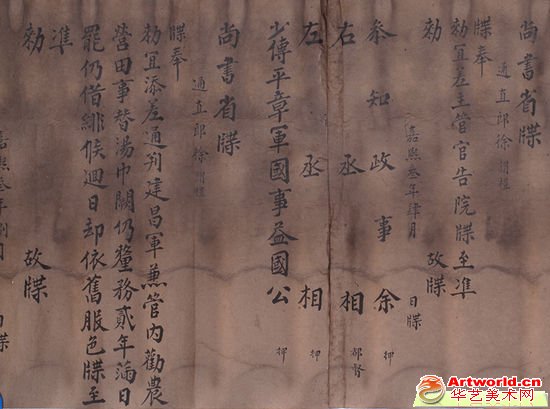 尚書省牒
通直郎徐謂禮
牒奉
勑宜差主管官告院牒至準
勑 故牒
嘉熙叁年肆月 日牒
叅知政事余 押
右丞相 都督
左丞相 押
少傅平章軍國事益國公 押
尚書省牒
通直郎徐謂禮
牒奉
勑宜添差通判建昌軍兼管内勸農
營田事替湯巾闕仍釐務貳年滿日
罷仍借緋候迴日却依舊服色牒至
準
勑 故牒
嘉熙叁年捌月 日牒
Artworld.cn
华艺美术网